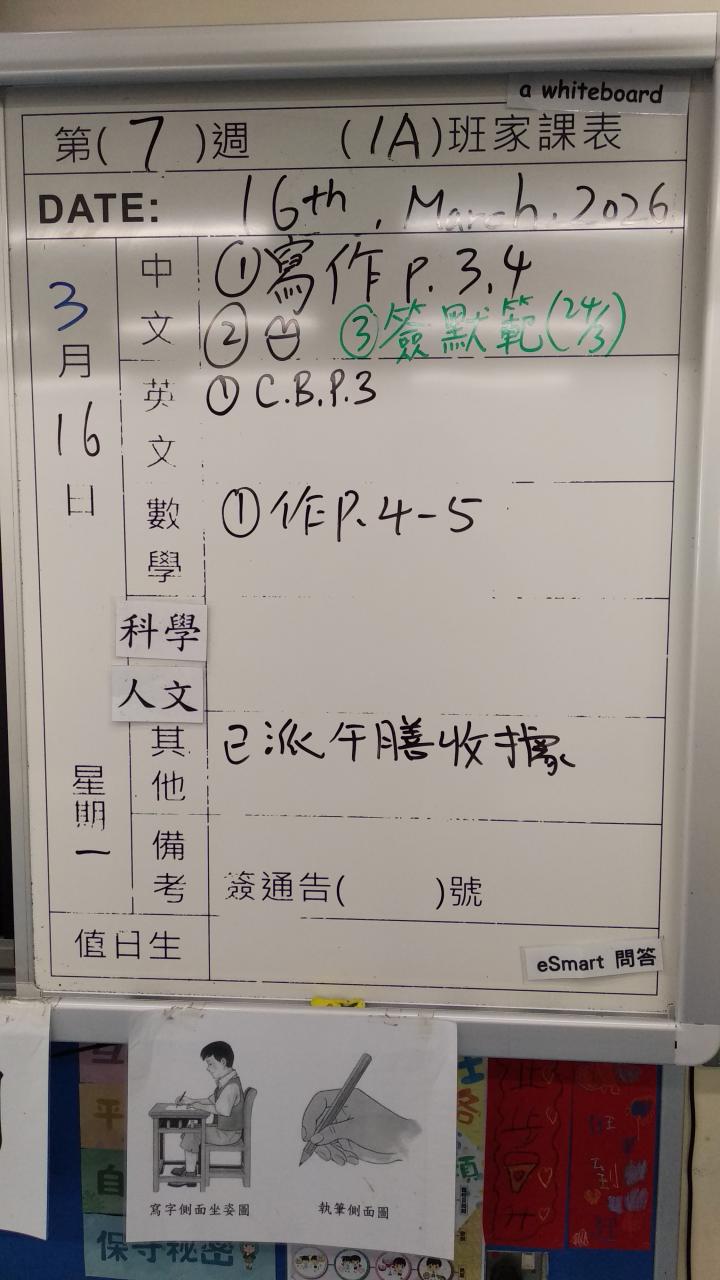 a whiteboard
第( 7 )週 (1A)班家課表
DATE: 16th, March, 2026
3月16日 星期一
中文
①寫作 p. 3,4
② ③簽默範(24/3)
英文
① C.B.P.3
數學
①作P.4-5
科學
人文
其他
已派午膳收據
備考
簽通告( )號
值日生
eSmart 問答
寫字側面坐姿圖 執筆側面圖
平
自
保守秘密